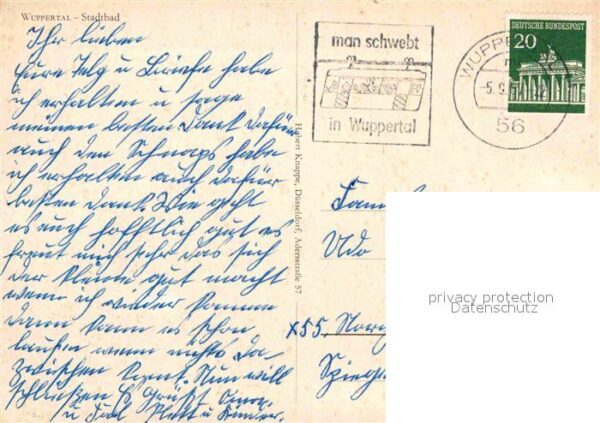 WUPPERTAL – Stadtbad
Ihr lieben
Eure Telg u Briefe habe
ich erhalten u sage
meinen besten Dank dafür
auch den Schnaps habe
ich erhalten auch dafür
besten Dank. Wie geht
es euch hofftlich gut es
freut mich sehr das sich
der kleine gut macht
wenn ich wieder komme
dann kann es schon
laufen wenn nichts da-
zwischen kommt. Nun will
schließen Es Grüßt
u Kinder.
Hubert Knappe, Düsseldorf, Adersstraße 57
man schwebt
in Wuppertal
WUPPE
-5.9.
56
DEUTSCHE BUNDESPOST
20
Udo
privacy protection
Datenschutz